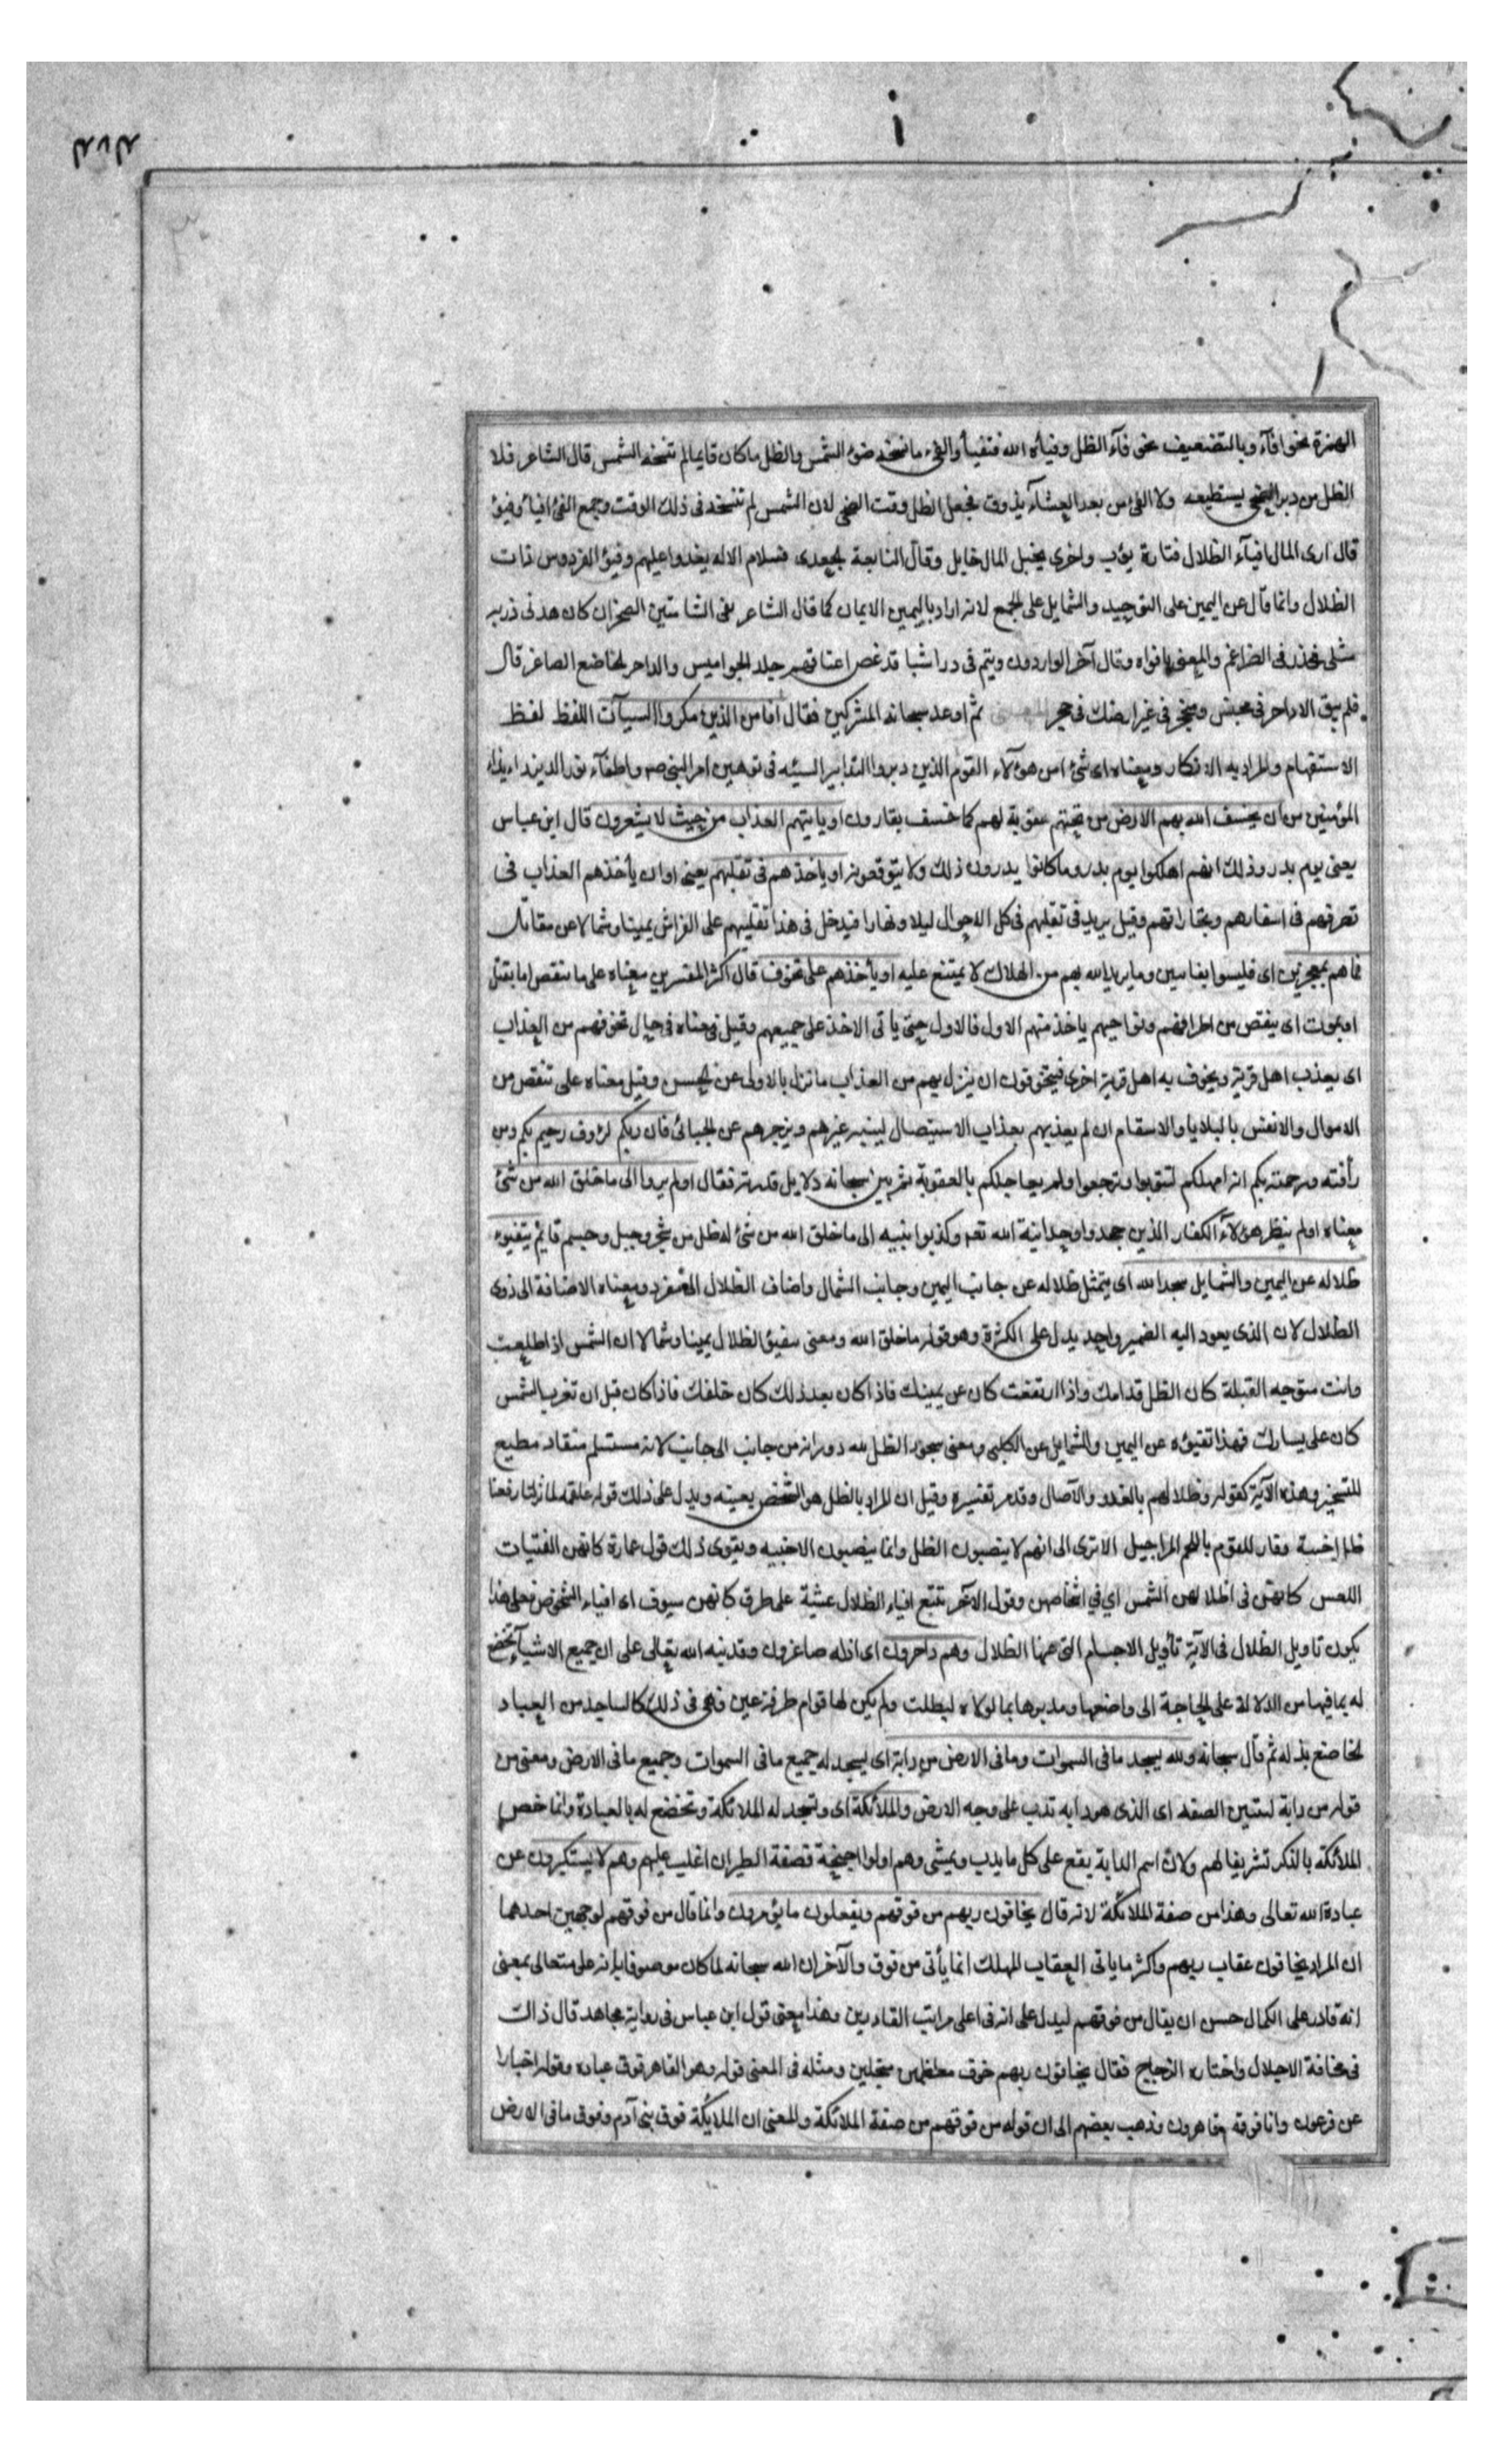 الهمزة نحو افآء وبالتضعيف نحو فآء الظل وفيأه الله فتفيأ والفيء ما نسخه ضوء الشمس والظل ما كان قايما لم تنسخه الشمس قال الشاعر فلا
الظل من برد الضحى يستطيعه ولا الفئ من بعد العشآء يذوق فجعل الظل وقت الضحى لان الشمس لم تنسخه فى ذلك الوقت وجمع الفئ افيآ وفيؤ
قال ارى المال افيآء الظلال فتارة يؤب واخرى يخبل المال خابل وقال النابعة الجعدى فسلام الاله يغدوا عليهم وفيؤ الفردوس ذات
الظلال وانما قال عن اليمين على التوحيد والشمايل على الجمع لانه اراد باليمين الايمان كما قال الشاعر بفى الشامتين الصخر ان كان هدنى رزية
شبلى مخدر فى الضراغم والمعنى بافواه وقال آخر الواردون وتيم فى ذرا سبا قد غص اعناقهم جلد الجواميس والداخر الخاضع الصاغر قال
فلم يبق الا داخر فى مخيس ومنجحر فى غير ارضك فى حجر ثم اوعد سبحانه المشركين فقال افامن الذين مكروا السيآت اللفظ لفظ
الاستفهام والمراد به الانكار ومعناه اى شئ امن هؤلآء القوم الذين دبروا التدابير السيئه فى توهين امر النبى صم واطفآء نور الدين وايذاء
المؤمنين من ان يخسف الله بهم الارض من تحتهم عقوبة لهم كما خسف بقارون او ياتيهم العذاب من حيث لا يشعرون قال ابن عباس
يعنى يوم بدر وذلك انهم اهلكوا يوم بدر وما كانوا يدرون ذلك ولا يتوقعونه او ياخذهم فى تقلبهم يعنى او ان يأخذهم العذاب فى
تصرفهم فى اسفارهم وتجاراتهم وقيل يريد فى تقلبهم فى كل الاحوال ليلا ونهارا فيدخل فى هذا تقلبهم على الفراش يمينا وشمالا عن مقاتل
فما هم بمعجزين اى فليسوا بفايتين وما يريد الله بهم من الهلاك لا يمتنع عليه او يأخذهم على تخوف قال اكثر المفسرين معناه على ما تنقص اما بقتل
او بموت اى ينقص من اطرافهم ونواحيهم ياخذ منهم الاول فالاول حتى ياتى الاخذ على جميعهم وقيل فى معناه فى حال تخوفهم من العذاب
اى يعذب اهل قرية ويخوف به اهل قرية اخرى فيتخوفون ان ينزل بهم من العذاب ما نزل بالاولى عن الحسن وقيل معناه على تنقص من
الاموال والانفس بالبلايا والاسقام ان لم يعذبهم بعذاب الاستيصال لينبه غيرهم ويزجرهم عن الجبائى فان ربكم لرؤف رحيم بكم ومن
رأفته ورحمته بكم انه امهلكم لتتوبوا وترجعوا ولم يعاجلكم بالعقوبة ثم بين سبحانه دلايل قدرته فقال اولم يروا الى ما خلق الله من شئ
معناه اولم ينظر هؤلآء الكفار الذين جحدوا وحدانية الله تعم وكذبوا نبيه الى ما خلق الله من شئ له ظل من شجر وجبل وجسم قايم يتفيؤ
ظلاله عن اليمين والشمايل سجدا لله اى يتمثل ظلاله عن جانب اليمين وجانب الشمال واضاف الظلال الى مفرد ومعناه الاضافة الى ذوى
الظلال لان الذى يعود اليه الضمير واحد يدل على الكثرة وهو قوله ما خلق الله ومعنى تفيؤ الظلال يمينا وشمالا ان الشمس اذا طلعت
وانت متوجه القبلة كان الظل قدامك واذا ارتفعت كان عن يمينك فاذا كان بعد ذلك كان خلفك فاذا كان قبل ان تغرب الشمس
كان على يسارك فهذا تفيؤه عن اليمين والشمايل عن الكلبى ومعنى سجود الظل لله دورانه من جانب الى جانب لانه مستسلم منقاد مطيع
للتسخير وهذه الآية كقوله وظلالهم بالغدو والآصال وقد مر تفسيره وقيل ان المراد بالظل هو الشخص بعينه ويدل على ذلك قول علقمه لما نزلنا رفعنا
ظل اخبية وفار للقوم باللحم المراجيل الا ترى الى انهم لا ينصبون الظل وانما ينصبون الاخبيه ويقوى ذلك قول عمارة كانهن الفتيات
اللعس كانهن فى اظلالهن الشمس اي في اشخاصهن وقول الآخر تتبع افياء الظلال عشية على طرق كانهن سيوف اى افياء الشخوص فعلى هذا
يكون تاويل الظلال فى الآية تأويل الاجسام التى عنها الظلال وهم داخرون اى اذله صاغرون وقد نبه الله تعالى على ان جميع الاشيآء تخضع
له بما فيها من الدلالة على الحاجة الى واضعها ومدبرها بما لولاه لبطلت ولم يكن لها قوام طرفة عين فهى فى ذلك كالساجد من العباد
الخاضع بذله ثم قال سبحانه ولله يسجد ما فى السموات وما فى الارض من دابة اى يسجد له جميع ما فى السموات وجميع ما فى الارض ومعنى من
قوله من دابة لتبيين الصفه اى الذى هو دابه تدب على وجه الارض والملائكة اى وتسجد له الملائكة وتخضع له بالعبادة وانما خص
الملائكة بالذكر تشريفا لهم ولان اسم الدابة يقع على كل ما يدب ويمشى وهم اولوا اجنحة فصفة الطيران اغلب عليهم وهم لا يستكبرون عن
عبادة الله تعالى وهذا من صفة الملائكة لانه قال يخافون ربهم من فوقهم ويفعلون ما يؤمرون وانما قال من فوقهم لوجهين احدهما
ان المراد يخافون عقاب ربهم واكثر ما ياتى العقاب المهلك انما يأتى من فوق والآخر ان الله سبحانه لما كان موصوفا بانه على متعالى بمعنى
انه قادر على الكمال حسن ان يقال من فوقهم ليدل على انه فى اعلى مراتب القادرين وهذا معنى قول ابن عباس فى رواية مجاهد قال ذلك
فى مخافة الاجلال واختاره الزجاج فقال يخافون ربهم خوف معظمين مجلين ومثله فى المعنى قوله وهو القاهر فوق عباده وقوله اخبارا
عن فرعون وانا فوقهم قاهرون وذهب بعضهم الى ان قوله من فوقهم من صفة الملائكة والمعنى ان الملائكة فوق بنى آدم وفوق ما فى الارض